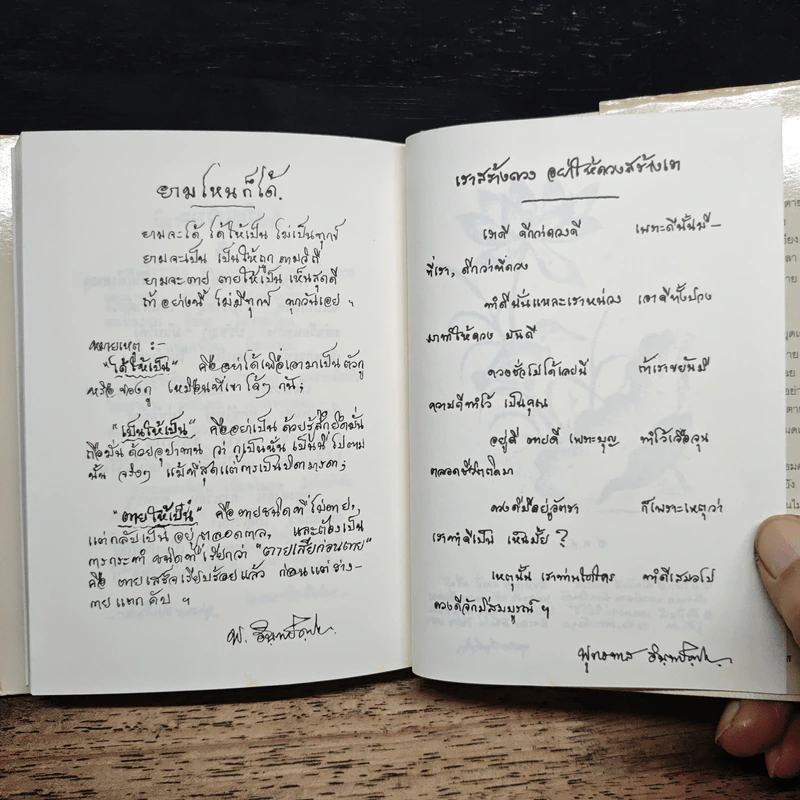 ยามไหนก็ได้.
ยามจะได้ ได้ให้เป็น ไม่เป็นทุกข์
ยามจะเป็น เป็นให้ถูก ตามวิถี
ยามจะตาย ตายให้เป็น เห็นสุดดี
ถ้าอย่างนี้ ไม่มีทุกข์ ทุกวันเอย ฯ
หมายเหตุ :-
"ได้ให้เป็น" คืออย่าได้เพื่อเอามาเป็นตัวกู
หรือของกู เหมือนที่เขาได้ๆ กัน;
"เป็นให้เป็น" คืออย่าเป็นด้วยรู้สึกยึดมั่น
ถือมั่นด้วยอุปาทาน ว่า กูเป็นนั่น เป็นนี่ ไปตาม
นั้น จริงๆ แม้ที่สุดแต่การเป็นบิดามารดา;
"ตายให้เป็น" คือตายชนิดที่ไม่ตาย,
แต่กลับเป็นอยู่ตลอดกาล, และต้องเป็น
การกระทำ ชนิดที่เรียกว่า "ตายเสียก่อนตาย"
คือ ตายเสร็จเรียบร้อยแล้ว ก่อนแต่ร่าง-
กายแตกดับ ฯ
พ. อินทปัญโญ.
เราสร้างดวง อย่าให้ดวงสร้างเรา
เราดี ดีกว่าดวงดี เพราะดีนั้นมี-
ที่เรา, ดีกว่าที่ดวง
ทำดีนั่นแหละเราหน่วง เอาดีทั้งปวง
มาทำให้ดวง มันดี
ดวงชั่วไปได้เลยนี่ ถ้าเราขยันมี
ความดีทำไว้ เป็นคุณ
อยู่ดี ตายดี เพราะบุญ ทำไว้เจือจุน
ตลอดชีวิตติดมา
ดวงดีมีอยู่อัตรา ก็เพราะเหตุว่า
เราทำดีเป็น เห็นมั้ย ?
เหตุนั้น เราท่านใดใคร ทำดีเสมอไป
ดวงดีจักมีสมบูรณ์ ฯ
พุทธทาส อินทปัญโญ.